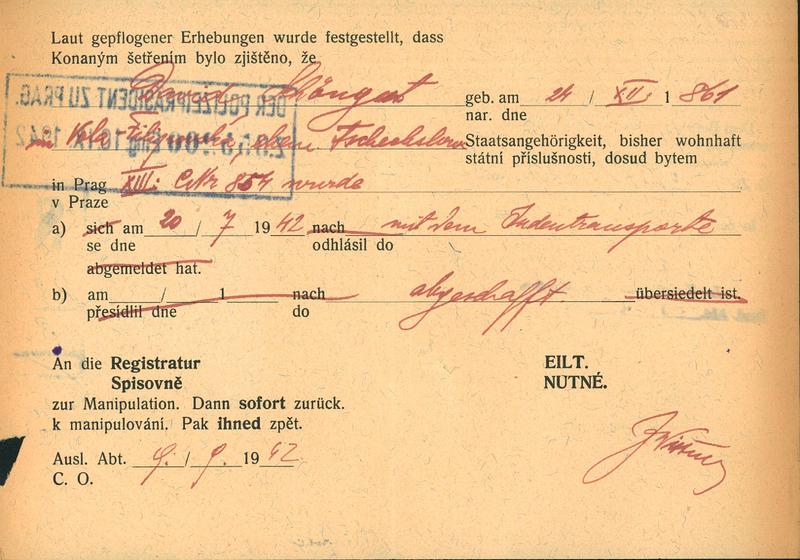 Laut gepflogener Erhebungen wurde festgestellt, dass
Konaným šetřením bylo zjištěno, že
DER POLIZEIPRÄSIDENT ZU PRAG.
geb. am 24 / XII. 1 861
nar. dne
Staatsangehörigkeit, bisher wohnhaft
státní příslušnosti, dosud bytem
in Prag XIII. CNr 854 wurde
v Praze
a) sich am 20 / 7 1942 nach mit dem Judentransporte
se dne odhlásil do
abgemeldet hat.
b) am / 1 nach abgeschafft übersiedelt ist.
přesídlil dne do
An die Registratur EILT.
Spisovně NUTNÉ.
zur Manipulation. Dann sofort zurück.
k manipulování. Pak ihned zpět.
Ausl. Abt. 9. / 9. 1942
C. O.